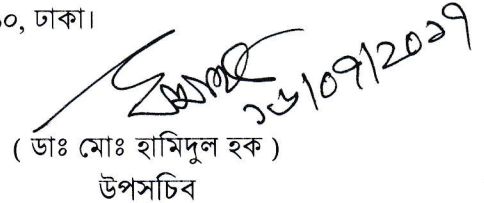 ০, ঢাকা।
১৬/০৭/২০১৭
( ডাঃ মোঃ হামিদুল হক )
উপসচিব